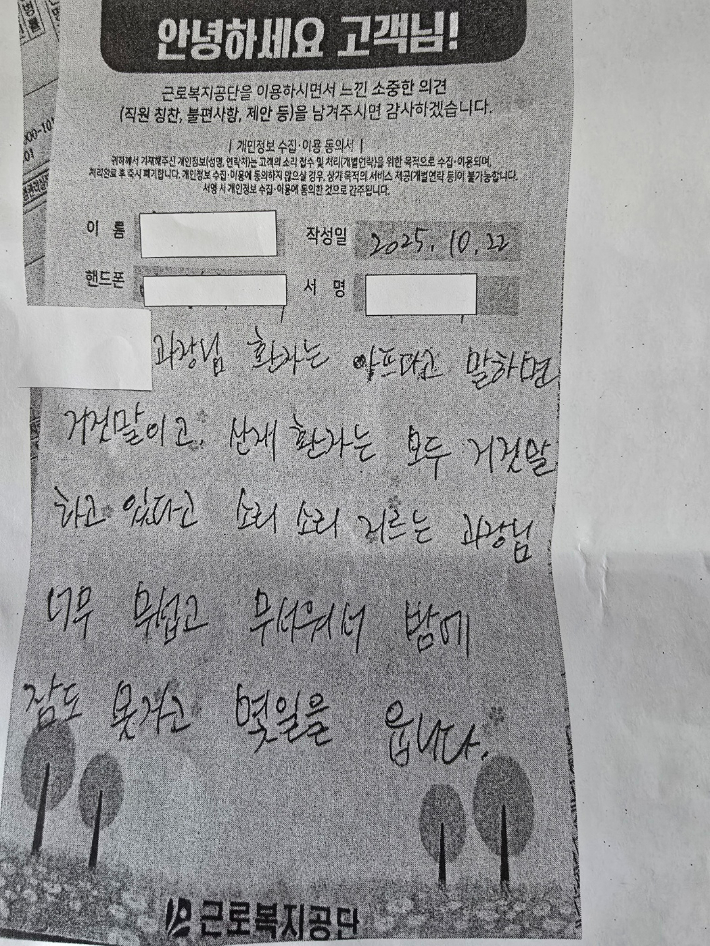 안녕하세요 고객님!
근로복지공단을 이용하시면서 느낀 소중한 의견
(직원 칭찬, 불편사항, 제안 등)을 남겨주시면 감사하겠습니다.
| 개인정보 수집·이용 동의서 |
귀하께서 기재해주신 개인정보(성명, 연락처)는 고객의 소리 접수 및 처리(개별연락)을 위한 목적으로 수집·이용되며,
처리완료 후 즉시 폐기합니다. 개인정보 수집·이용에 동의하지 않으실 경우, 상기 목적의 서비스 제공(개별연락 등)이 불가능합니다.
서명 시 개인정보 수집·이용에 동의한 것으로 간주됩니다.
이 름 작성일 2025. 10. 22
핸드폰 서 명
과장님 환자는 아프다고 말하면
거짓말이고, 산재 환자는 모두 거짓말
하고 있다고 소리 소리 지르는 과장님
너무 무섭고 무서워서 밤에
잠도 못자고 몇일을 웁니다.
근로복지공단